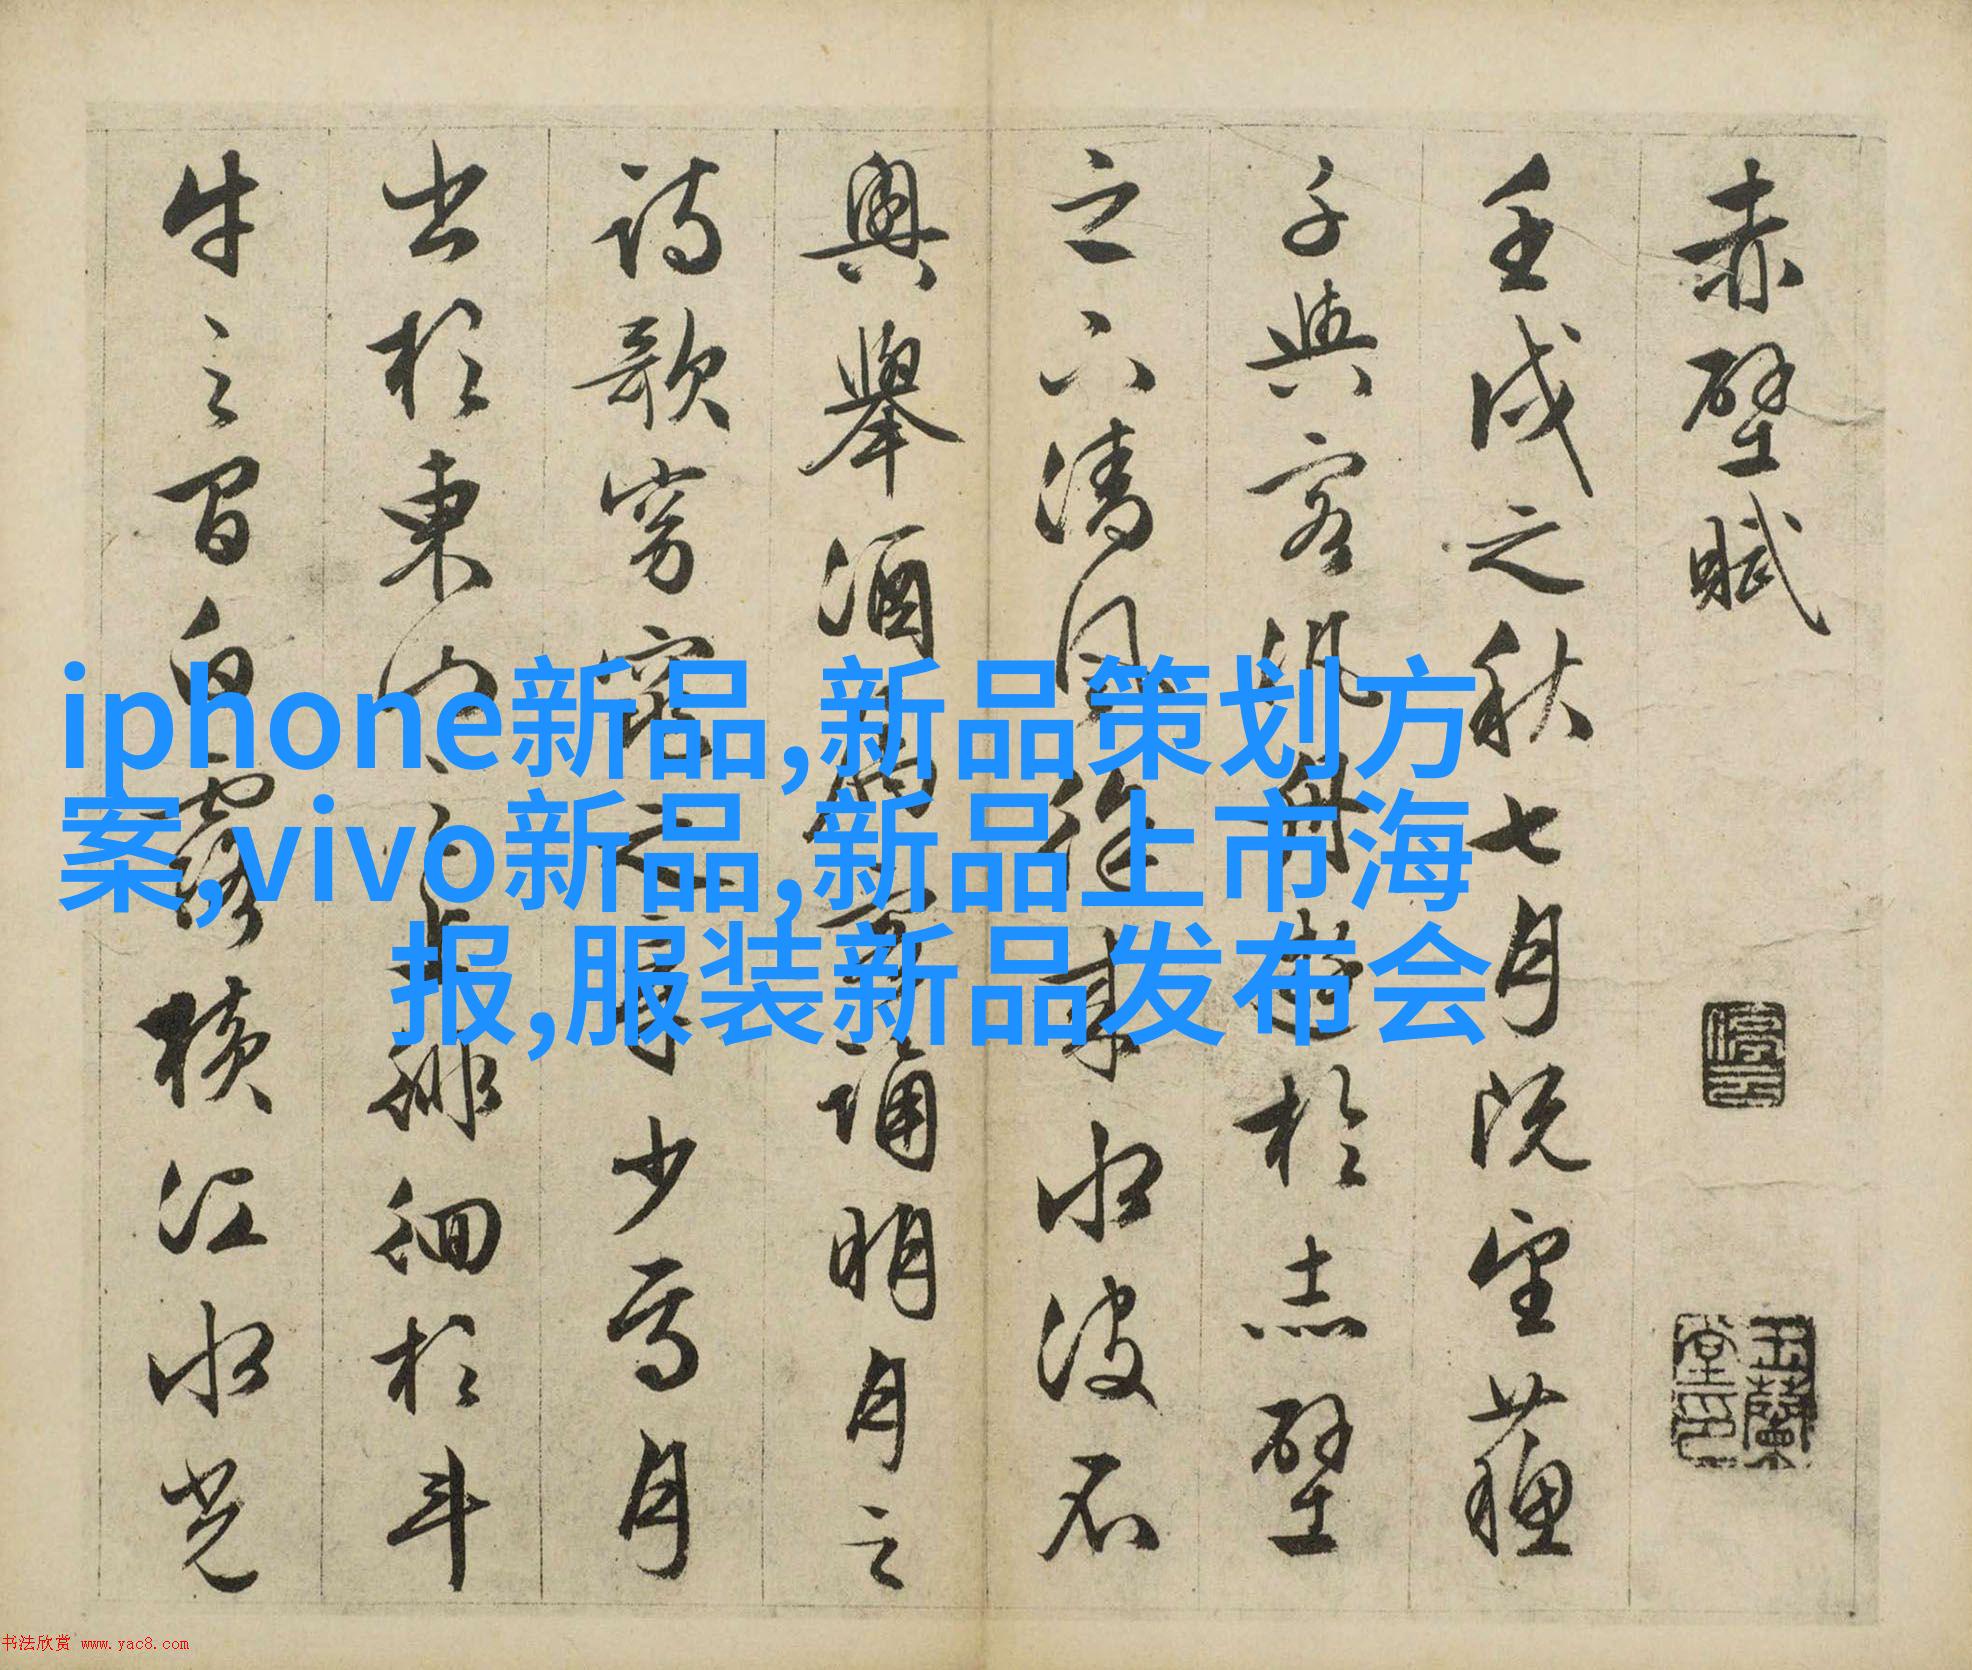 赤壁賦
壬戌之秋七月既望蘇
子與客汎舟遊於赤壁
之下清風徐來水波不
興舉酒屬客誦明月之
詩歌窈窕之章少焉月
出於東山之上徘徊於斗
牛之間白露橫江水光
停云
玉蘭堂印
iphone新品,新品策划方
案,vivo新品,新品上市海
报,服装新品发布会
书法欣赏 www.yac8.com